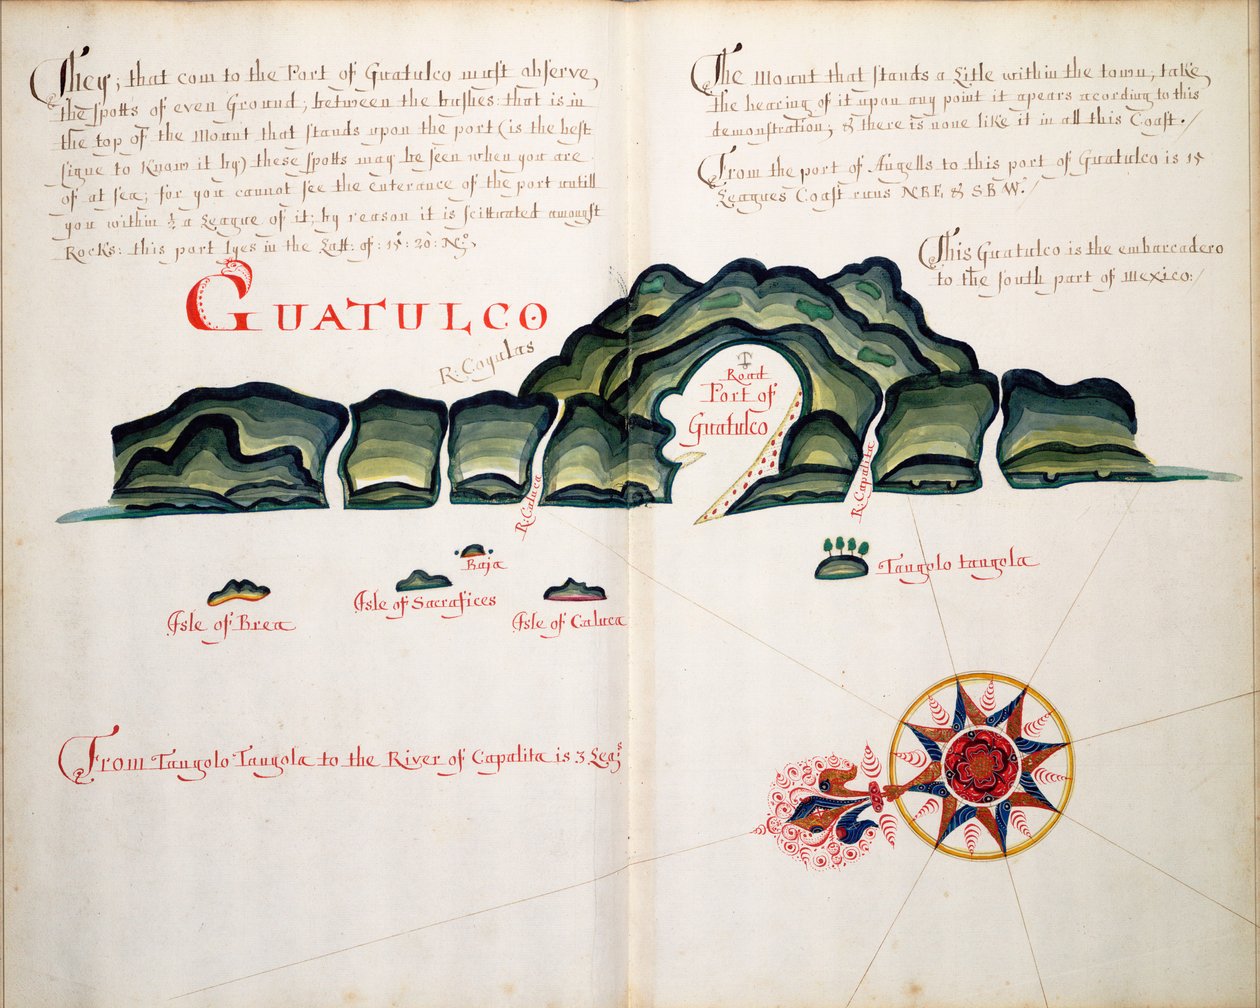 They; that com to the Port of Guatulco must observe
the spotts of even Ground; between the bushes: that is in
the top of the Mount that stands upon the port (is the best
signe to Know it by) these spotts may be seen when you are
of at sea; for you cannot see the enterance of the port untill
you within ½ a League of it; by reason it is scittuated amongst
Rocks: this part lyes in the Latt: of: 15: 20: No:
The Mount that stands a Litle within the town; take
the bearing of it upon any point it apears acording to this
demonstration; & there is none like it in all this Coast./
From the port of Angells to this port of Guatulco is 15
Leagues Coast runs NBE & SBW:/
This Guatulco is the embarcadero
to the south part of Mexico:/
GUATULCO
R: Coyulas
Road
Port of
Guatulco
R: Caluca
R: Capalita
Raja
Isle of Brea
Isle of Sacrafices
Isle of Caluca
Tangolo tangola
From Tangolo Tangola to the River of Capalita is 3 Leags